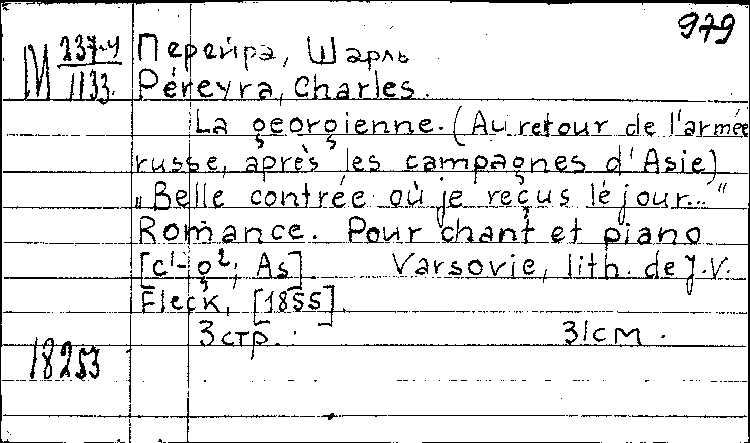 979
М 237-4/1133. Перейра, Шарль
Péreyra, Charles.
La georgienne. (Au retour de l'armée
russe, après les campagnes d'Asie)
„Belle contrée où je reçus le jour..."
Romance. Pour chant et piano
[c¹-g²; As]. Varsovie, lith. de J.V.
Fleck, [1855].
3 стр. 31 см.
18253